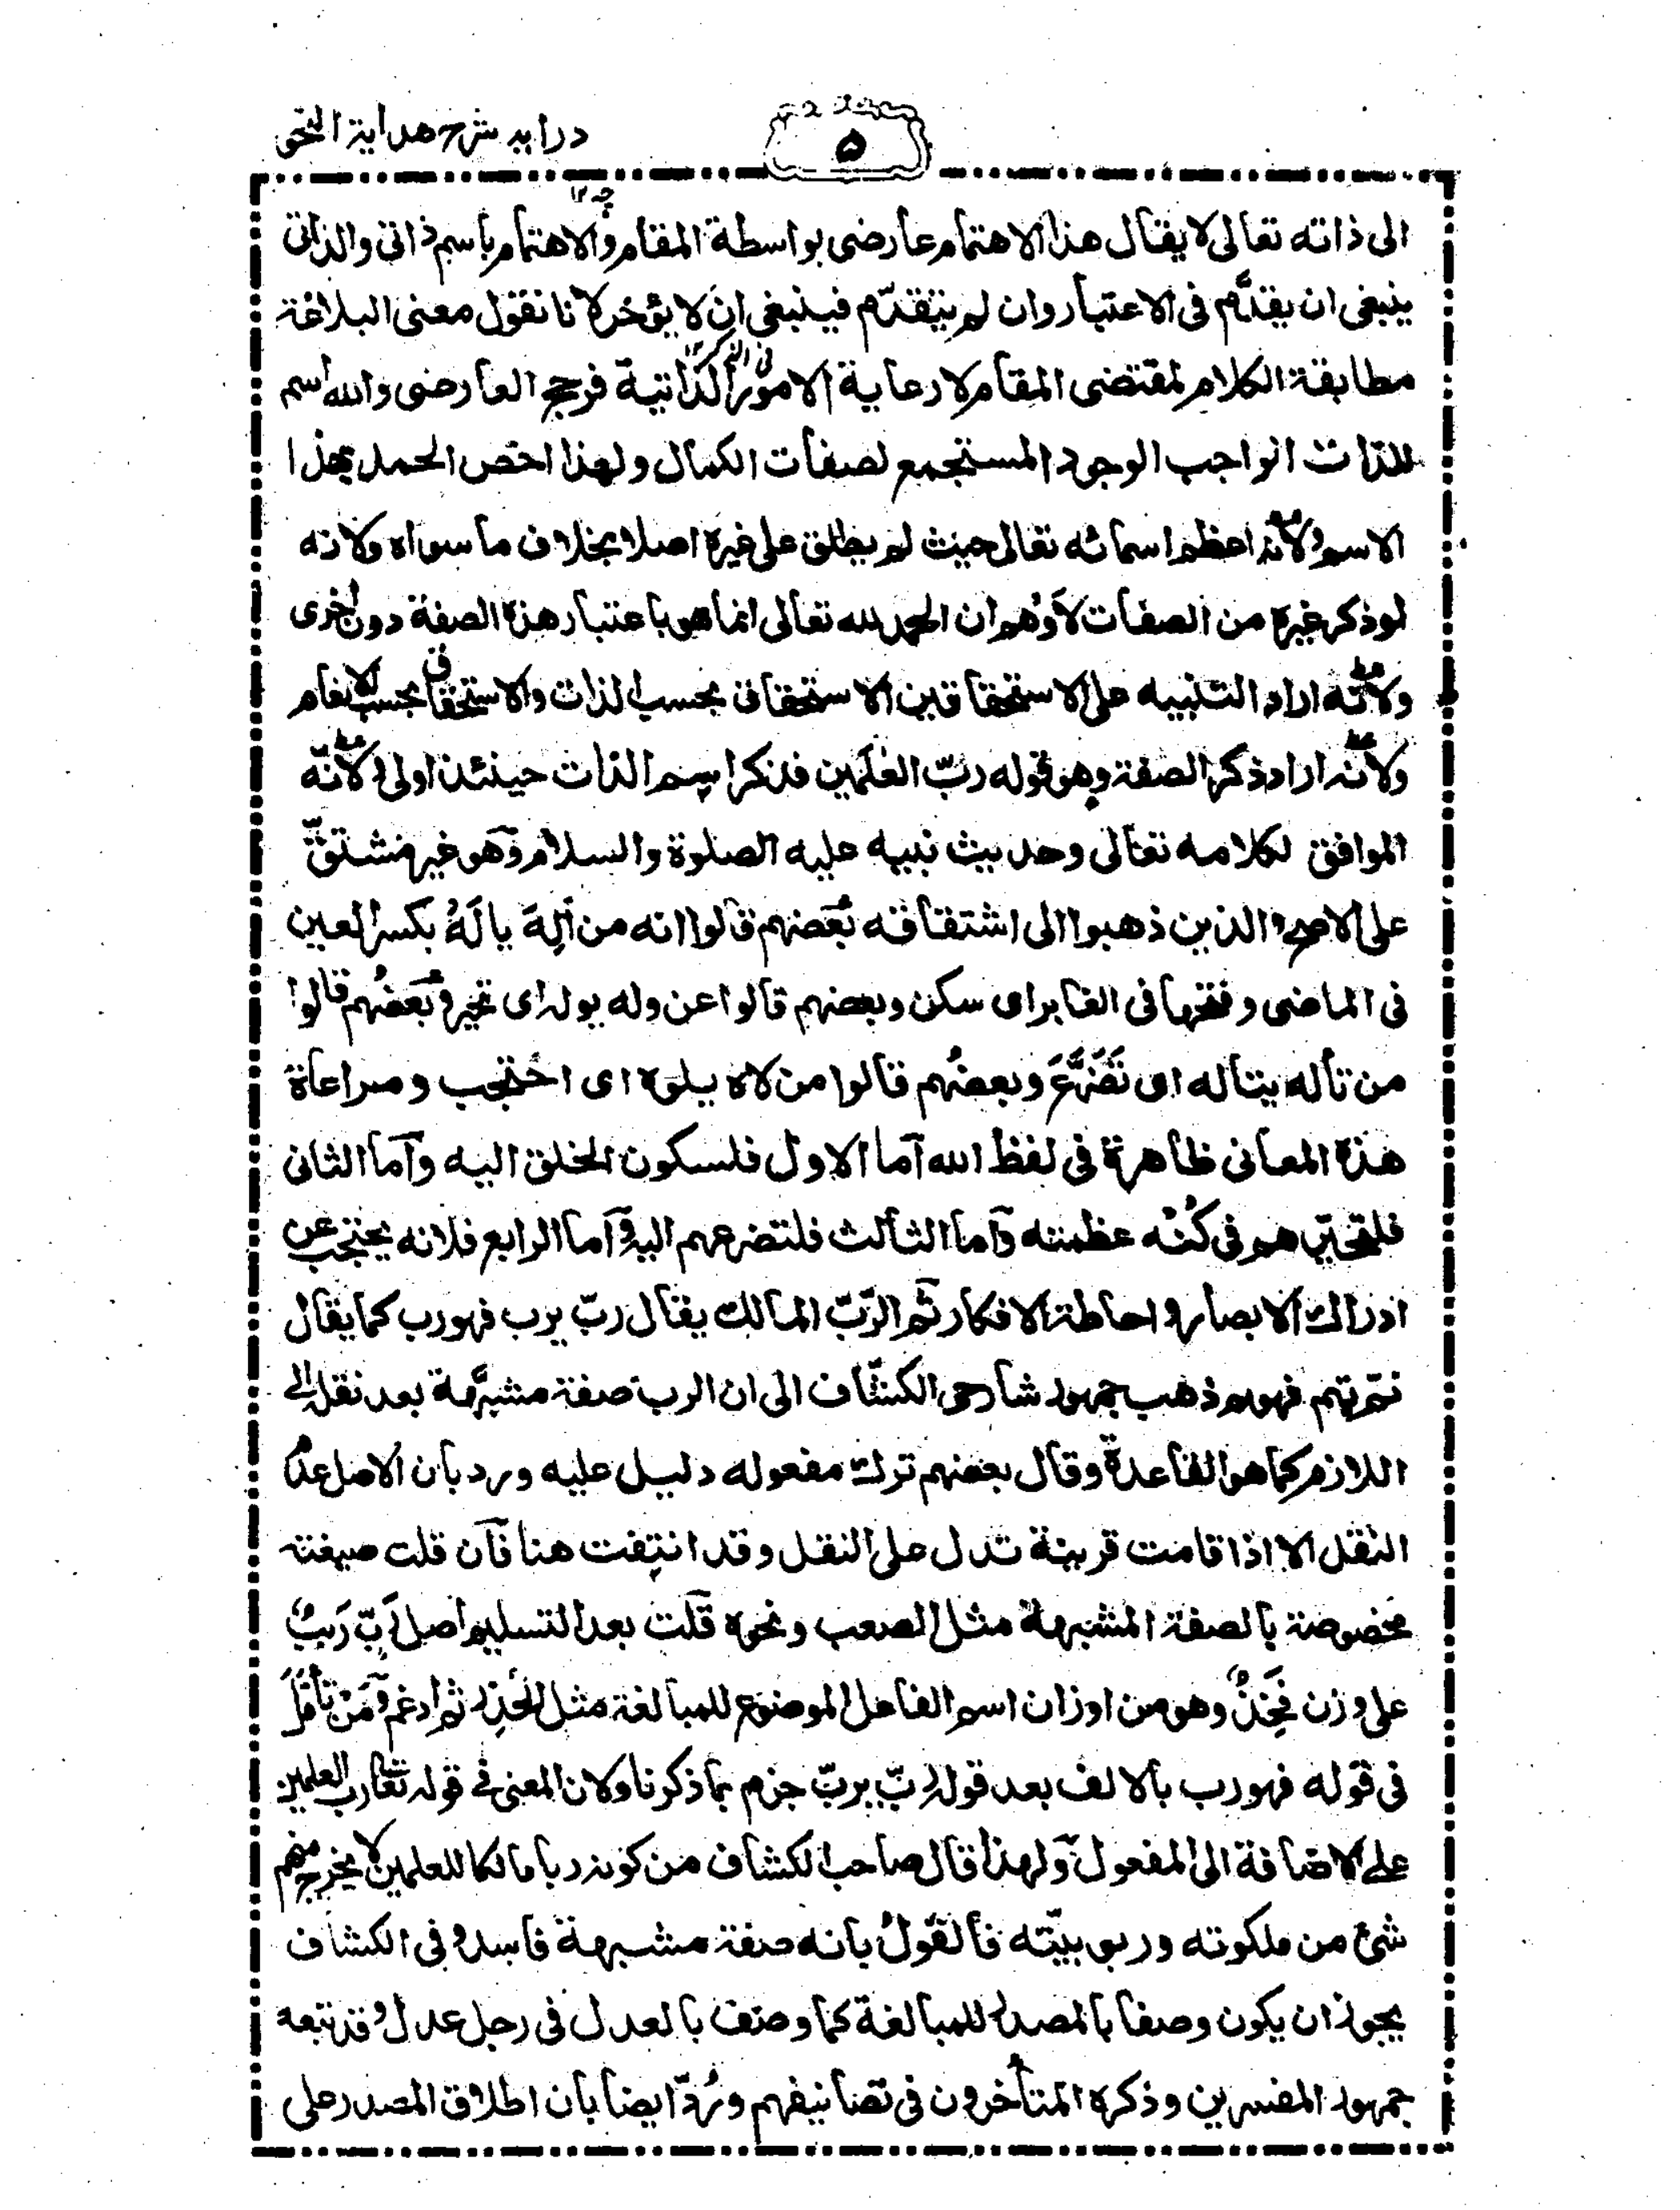 درايه شرح هداية النحو
۵
الى ذاته تعالى لا يقال هذا الاهتمام عارضى بواسطة المقام والاهتمام باسم ذاتى والذاتى
ينبغى ان يقدَّم فى الاعتبار وان لم يتقدّم فينبغى ان لا يؤخر لانا نقول معنى البلاغة
مطابقة الكلام لمقتضى المقام لا رعاية الامور الذاتية فى الذكر ۱۲ فرجح العارضى والله اسم
للذات الواجب الوجود المستجمع لصفات الكمال ولهذا اختص الحمد بهذا
الاسم ولانه اعظم اسمائه تعالى حيث لم يطلق على غيره اصلا بخلاف ما سواه ولانه
لو ذكر غيره من الصفات لاَوْهم ان الحمد لله تعالى انما هو باعتبار هذه الصفة دون اخرى
ولانّه اراد التنبيه على الاستحقاقين الاستحقاق بحسب الذات والاستحقاق بحسب الانعام
ولانّه اراد ذكر الصفة وهو قوله ربّ العٰلمين فذكر اسم الذات حينئذ اولى ولانّه
الموافق لكلامه تعالى وحديث نبيه عليه الصلوة والسلام وهو غير مشتقّ
على الاصح والذين ذهبوا الى اشتقاقه بعضهم قالوا انه من اَلِهَ يالَهُ بكسر العين
فى الماضى وفتحها فى الغابر اى سكن وبعضهم قالوا عن وله يوله اى تحير وبعضُهم قالوا
من تأله يتأله اى تَضَرَّعَ وبعضُهم قالوا من لاه يلوه اى احتجب ومراعاة
هذه المعانى ظاهرة فى لفظ الله اما الاول فلسكون الخلق اليه واما الثانى
فلتحيّرهم فى كُنْه عظمته واما الثالث فلتضرعهم اليه واما الرابع فلانه يحتجب عن
ادراك الابصار واحاطة الافكار ثم الرّبّ المالك يقال ربّ يرب فهو رب كما يقال
نمّ ينم فهو نم وذهب جمهور شارحى الكشّاف الى ان الرب صفة مشبَّهة بعد نقله الى
اللازم كما هو القاعدة وقال بعضهم ترك مفعوله دليل عليه ورد بان الاصل عدم
النقل الا اذا قامت قرينة تدل على النقل وقد انتفت هنا فان قلت صيغته
مخصوصة بالصفة المشبهة مثل الصعب ونحوه قلت بعد التسليم اصل رَبّ رَبِبٌ
على وزن فَخِذٌ وهو من اوزان اسم الفاعل الموضوع للمبالغة مثل الحَذِر ثم ادغم ومَنْ تأمّلَ
فى قوله فهو رب بالالف بعد قوله ربّ يربّ جزم بما ذكرنا ولان المعنى فى قوله تعالى رب العلمين
على الاضافة الى المفعول ولهذا قال صاحب الكشاف من كونه ربا مالكا للعلمين لا يخرج منهم
شئ من ملكوته وربوبيّته فالقولُ بانه صفة مشبهة فاسد وفى الكشاف
يجوز ان يكون وصفا بالمصدر للمبالغة كما وصف بالعدل فى رجل عدل وقد تبعه
جمهور المفسرين وذكره المتأخرون فى تصانيفهم ورُدّ ايضا بان اطلاق المصدر على